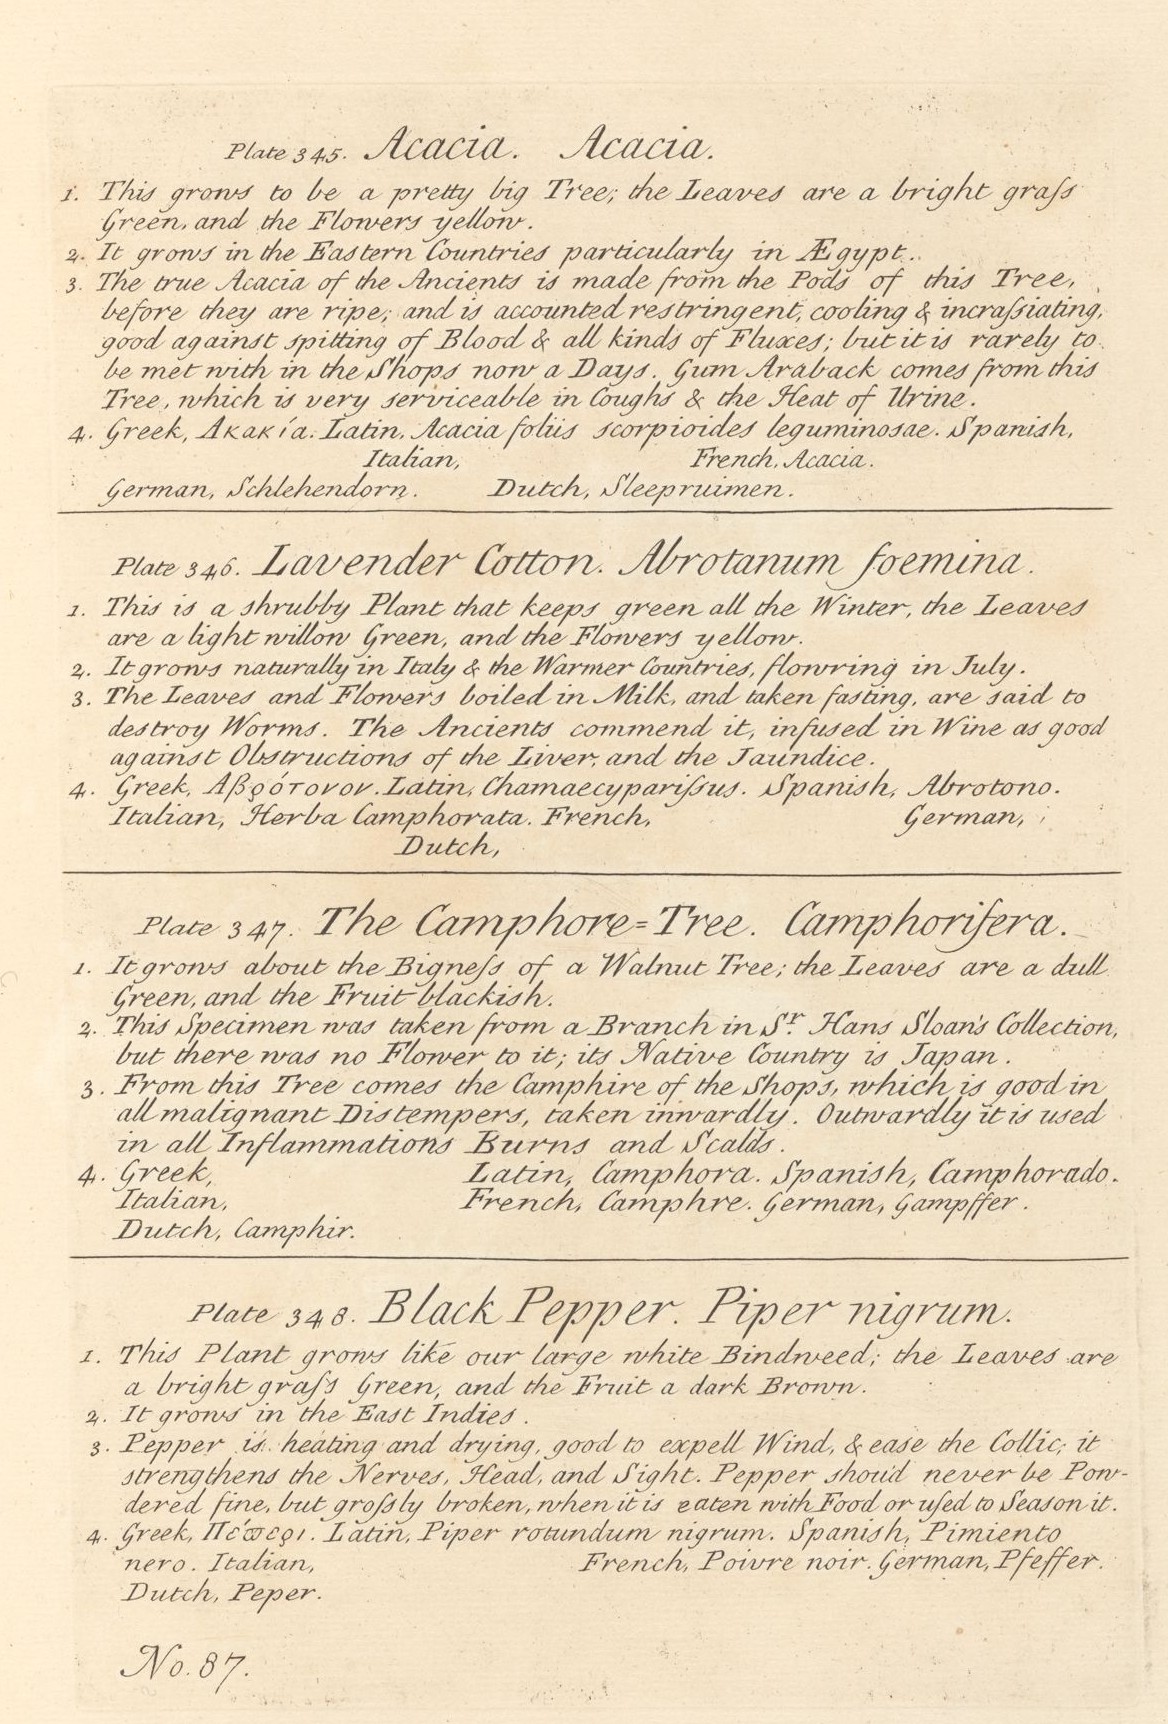 Plate 345. Acacia. Acacia.
1. This grows to be a pretty big Tree; the Leaves are a bright graſs
Green, and the Flowers yellow.
2. It grows in the Eastern Countries particularly in Ægypt.
3. The true Acacia of the Ancients is made from the Pods of this Tree,
before they are ripe; and is accounted restringent, cooling & incraſsiating,
good against spitting of Blood & all kinds of Fluxes; but it is rarely to
be met with in the Shops now a Days. Gum Araback comes from this
Tree, which is very serviceable in Coughs & the Heat of Urine.
4. Greek, Ακακία. Latin, Acacia foliis scorpioides leguminosae. Spanish,
Italian, French, Acacia.
German, Schlehendorn. Dutch, Sleepruimen.
Plate 346. Lavender Cotton. Abrotanum foemina.
1. This is a shrubby Plant that keeps green all the Winter, the Leaves
are a light willow Green, and the Flowers yellow.
2. It grows naturally in Italy & the Warmer Countries, flowring in July.
3. The Leaves and Flowers boiled in Milk, and taken fasting, are said to
destroy Worms. The Ancients commend it, infused in Wine as good
against Obstructions of the Liver, and the Jaundice.
4. Greek, Αβρότονον. Latin, Chamaecypariſsus. Spanish, Abrotono.
Italian, Herba Camphorata. French, German,
Dutch,
Plate 347. The Camphore=Tree. Camphorifera.
1. It grows about the Bigneſs of a Walnut Tree; the Leaves are a dull
Green, and the Fruit blackish.
2. This Specimen was taken from a Branch in Sr. Hans Sloan's Collection,
but there was no Flower to it; its Native Country is Japan.
3. From this Tree comes the Camphire of the Shops, which is good in
all malignant Distempers, taken inwardly. Outwardly it is used
in all Inflammations Burns and Scalds.
4. Greek, Latin, Camphora. Spanish, Camphorado.
Italian, French, Camphre. German, Gampffer.
Dutch, Camphir.
Plate 348. Black Pepper. Piper nigrum.
1. This Plant grows like our large white Bindweed; the Leaves are
a bright graſs Green, and the Fruit a dark Brown.
2. It grows in the East Indies.
3. Pepper is heating and drying, good to expell Wind, & ease the Collic; it
strengthens the Nerves, Head, and Sight. Pepper shou'd never be Pow-
dered fine, but groſsly broken, when it is eaten with Food or uſed to Season it.
4. Greek, Πέϖερι. Latin, Piper rotundum nigrum. Spanish, Pimiento
nero. Italian, French, Poivre noir. German, Pfeffer.
Dutch, Peper.
No. 87.